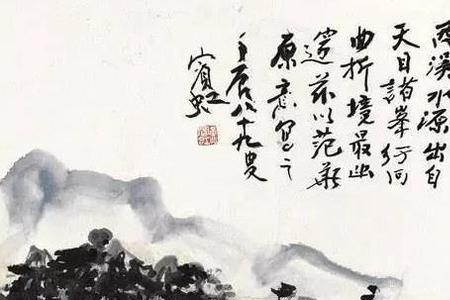 西溪水源出自
天目諸峯紆回
曲折境最幽
邃茲以范華
原意寫之
壬辰八十九叟
賓虹